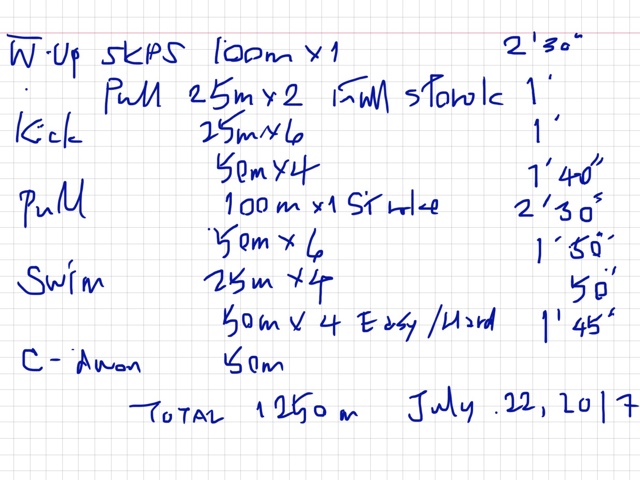 W-Up SKPS 100m×1 2'30"
Pull 25m×2 1'
Kick 25m×6 1'
50m×4 1'40"
Pull 100m×1 Stroke 2'30"
50m×6 1'50"
Swim 25m×4 50"
50m×4 Easy/Hard 1'45"
C-dwon 50m
TOTAL 1250m July.22,2017